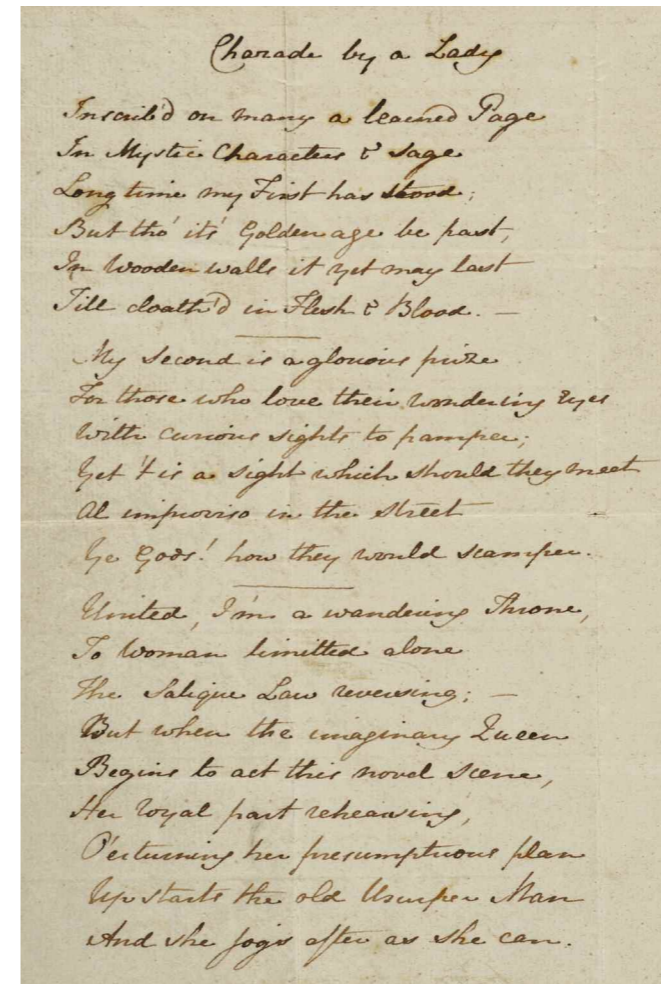 Charade by a Lady
Inscrib'd on many a learned Page
In Mystic Characters & Sage
Long time my First has stood;
But tho' its' Golden age be past,
In Wooden walls it yet may last
Till cloath'd in Flesh & Blood. —
My Second is a glorious prize
For those who love their wondering Eyes
With curious sights to pamper;
Yet 't is a sight which should they meet
Al improviso in the street
Ye Gods! how they would scamper.
United, I'm a wandering Throne,
To Woman limitted alone
The Salique Law reversing; —
But when the imaginary Queen
Begins to act this novel scene,
Her royal part rehearsing,
O'erturning her presumptuous plan
Up starts the old Usurper Man
And she jogs after as she can.